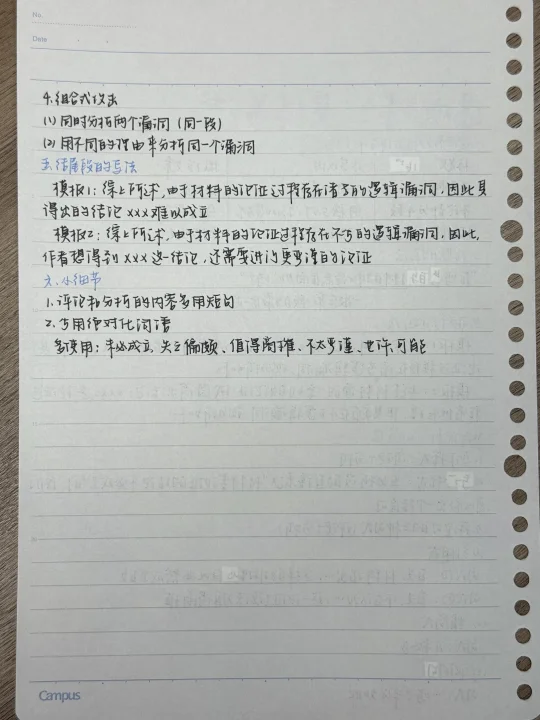 No.
Date
4.组合式攻击
(1) 同时分析两个漏洞（同一段）
(2) 用不同的理由来分析同一个漏洞
五.结尾段的写法
模板1：综上所述，由于材料的论证过程存在诸多的逻辑漏洞，因此其
得出的结论xxx难以成立
模板2：综上所述，由于材料的论证过程存在不少的逻辑漏洞，因此，
作者想得到xxx这一结论，还需要进行更严谨的论证
六.小细节
1.评论和分析的内容多用短句
2.少用绝对化词语
多使用：未必成立、失之偏颇、值得商榷、不太严谨、也许、可能
Campus